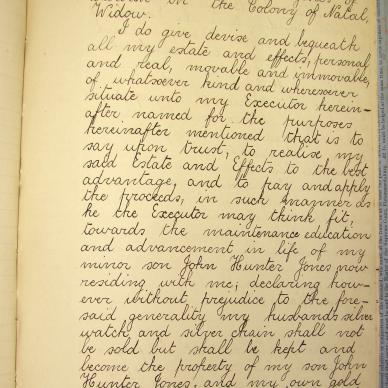 in the Colony of Natal,
Widow.
I do give devise and bequeath
all my estate and effects, personal
and real, movable and immovable,
of whatsoever kind and wheresoever
situate unto my Executor herein-
after named for the purposes
hereinafter mentioned that is to
say upon trust, to realise my
said Estate and Effects to the best
advantage, and to pay and apply
the proceeds, in such manner as
he the Executor may think fit,
towards the maintenance education
and advancement in life of my
minor son John Hunter Jones now
residing with me; declaring how-
ever without prejudice to the fore-
said generality my husband's silver
watch and silver chain shall not
be sold but shall be kept and
become the property of my son John
Hunter Jones, and my own gold